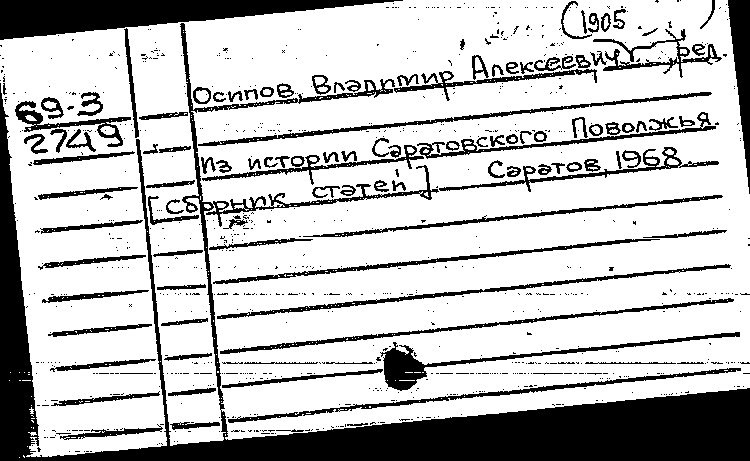 (1905 )
69-3
2749
Осипов, Владимир Алексеевич, ред.
Из истории Саратовского Поволжья.
[сборник статей] Саратов, 1968.